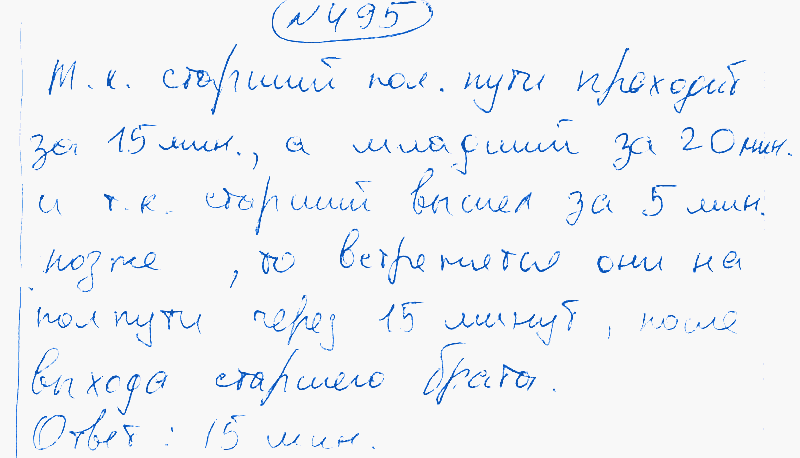 №495
т.к. старший пол. пути проходит
за 15 мин., а младший за 20 мин.
и т.к. старший вышел за 5 мин.
позже, то встретятся они на
полпути через 15 минут, после
выхода старшего брата.
Ответ: 15 мин.